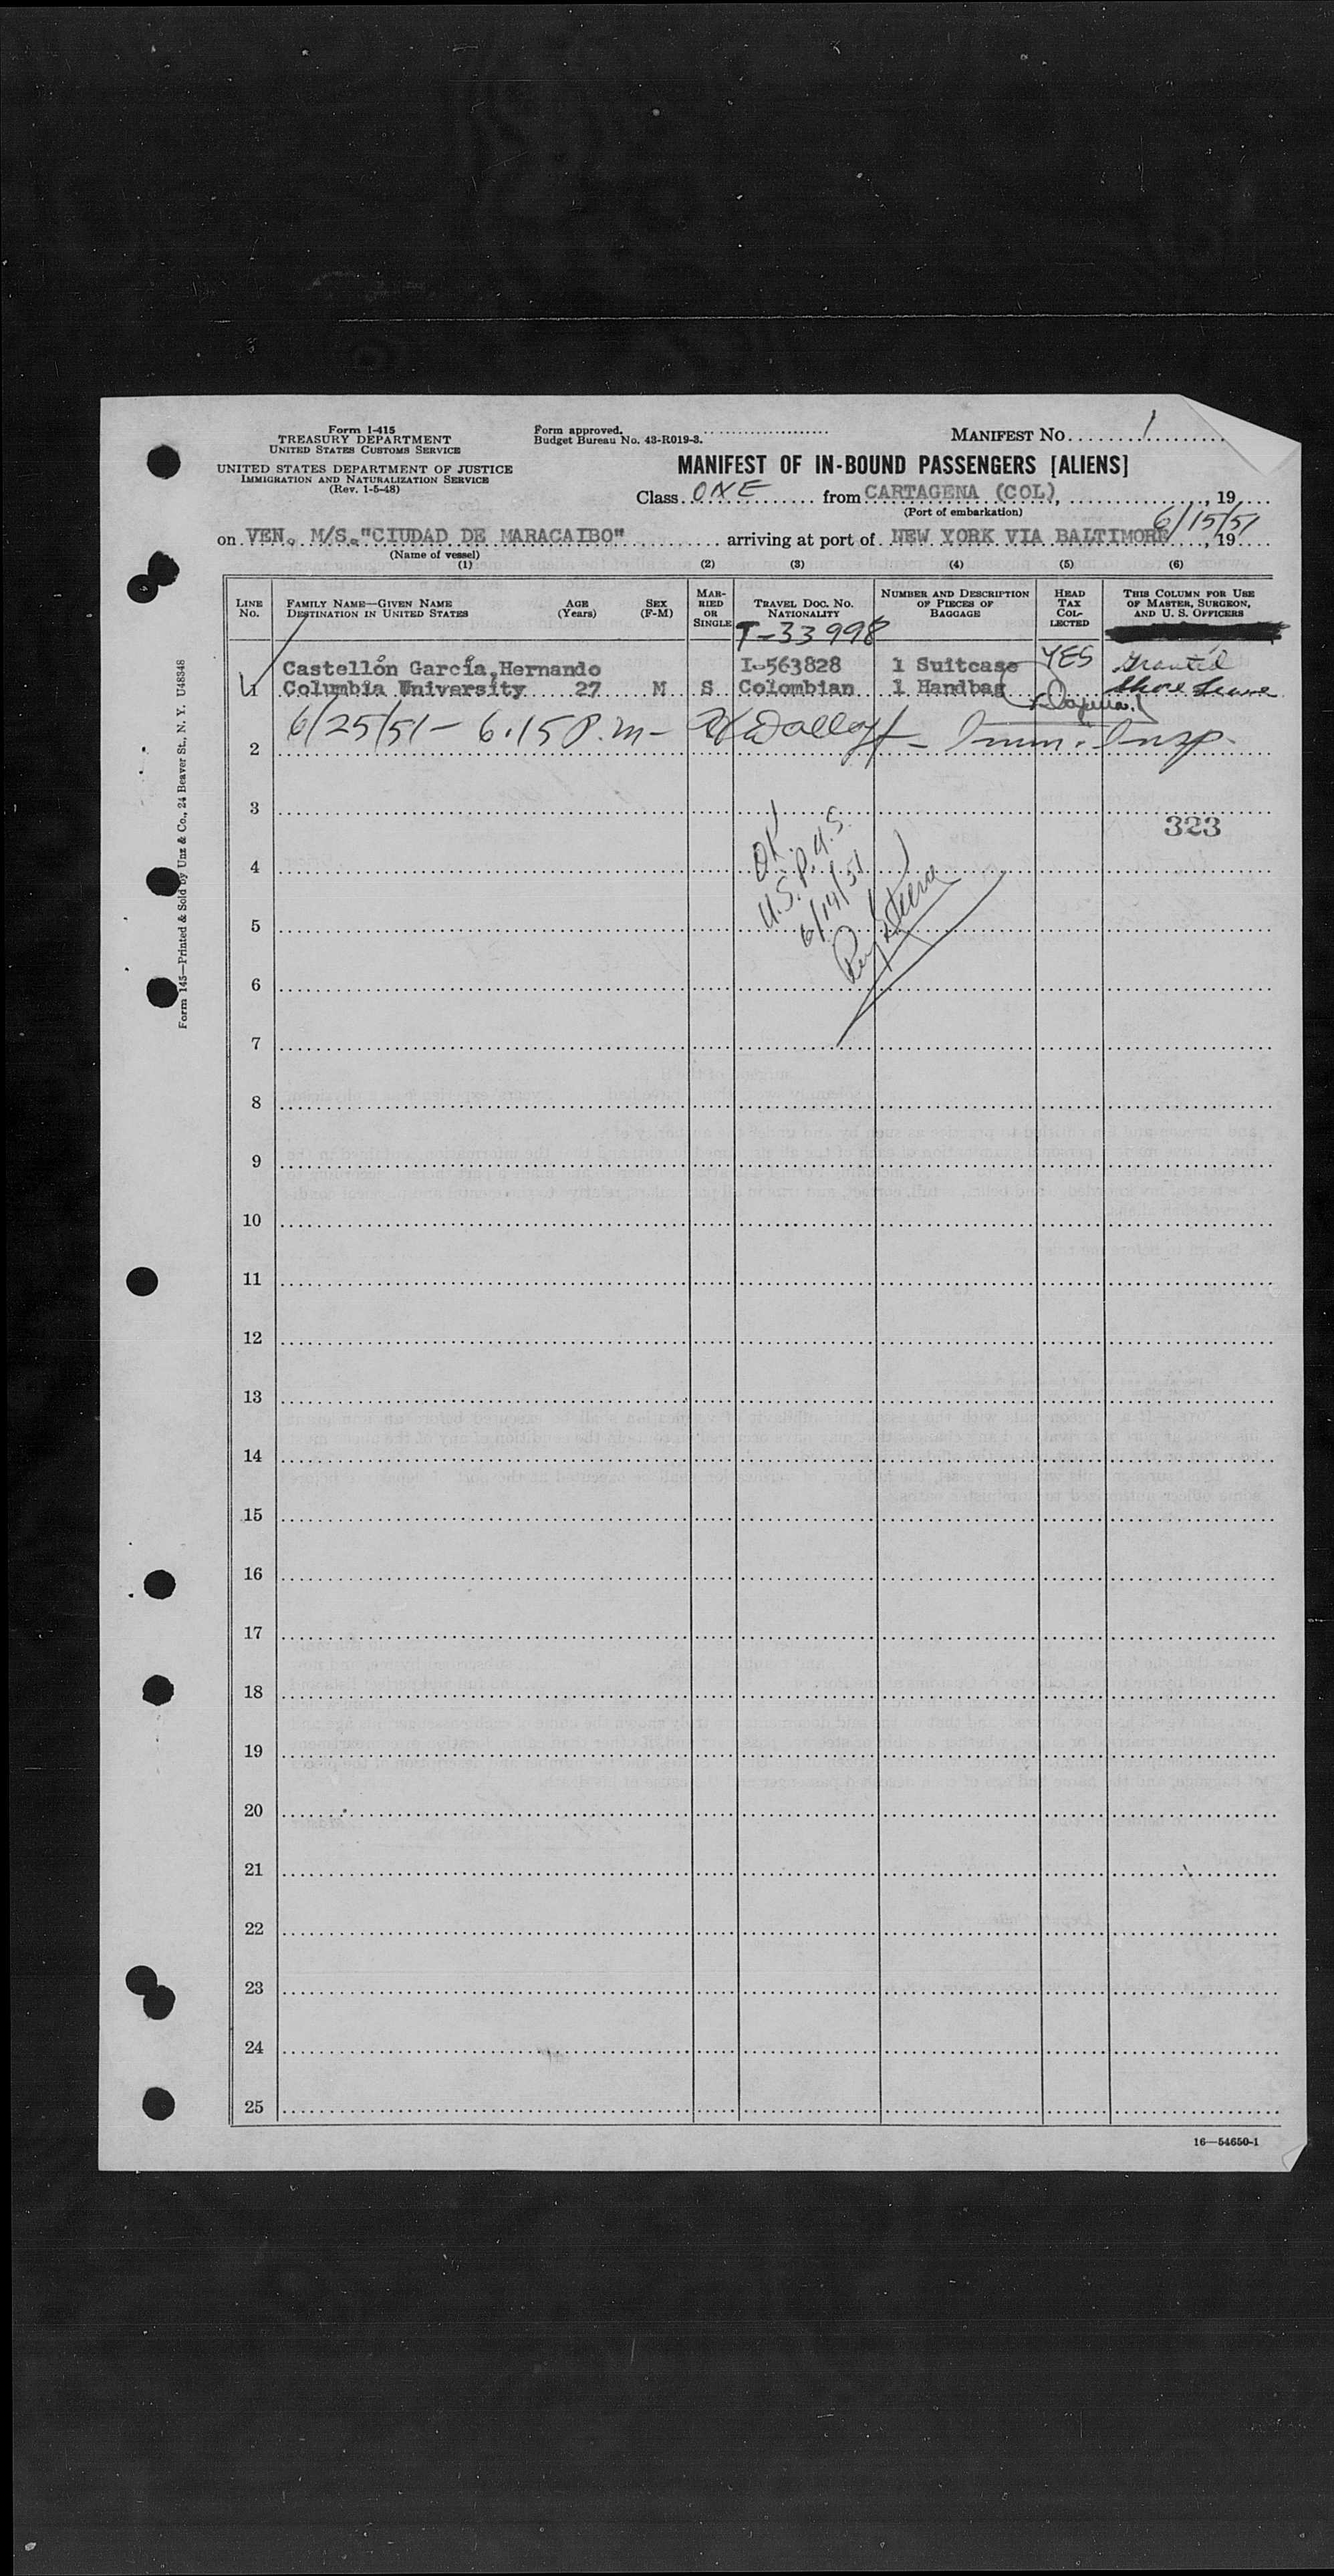 Form I-415
TREASURY DEPARTMENT
UNITED STATES CUSTOMS SERVICE
UNITED STATES DEPARTMENT OF JUSTICE
IMMIGRATION AND NATURALIZATION SERVICE
(Rev. 1-5-48)
Form approved.
Budget Bureau No. 43-R019-3.
MANIFEST NO. 1
MANIFEST OF IN-BOUND PASSENGERS [ALIENS]
Class ONE from CARTAGENA (COL), , 19
(Port of embarkation)
on VEN. M/S."CIUDAD DE MARACAIBO" arriving at port of NEW YORK VIA BALTIMORE 6/15/51, 19
(Name of vessel)
(1) (2) (3) (4) (5) (6)
LINE NO. FAMILY NAME—GIVEN NAME DESTINATION IN UNITED STATES AGE (Years) SEX (F-M) MARRIED OR SINGLE TRAVEL DOC. NO. NATIONALITY NUMBER AND DESCRIPTION OF PIECES OF BAGGAGE HEAD TAX COLLECTED THIS COLUMN FOR USE OF MASTER, SURGEON, AND U. S. OFFICERS
T-33998
Castellón García,Hernando I-563828 1 Suitcase YES Granted
1 Columbia University 27 M S Colombian 1 Handbag Shore Leave
6/25/51 - 6.15 P.m - Imm. Insp.
2
3
323
OK.
U.S.P.H.S.
6/14/51
4
5
6
7
8
9
10
11
12
13
14
15
16
17
18
19
20
21
22
23
24
25
16—54650-1
Form 145—Printed & Sold by Unz & Co., 24 Beaver St., N. Y. U48348